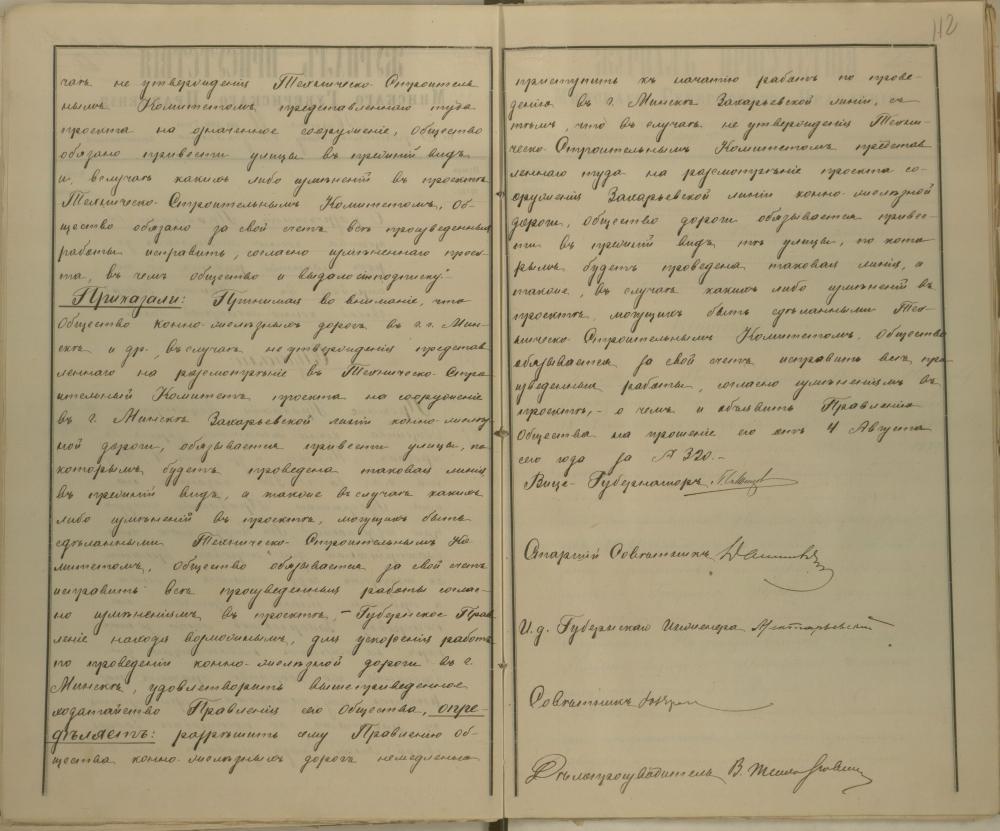 чаѣ не утвержденія Техническо-Строитель
нымъ Комитетомъ представленнаго туда
проекта на означенное сооруженіе, Общество
обязано привести улицы въ прежній видъ
и, въ случаѣ какихъ либо измѣненій въ проектѣ
Техническо-Строительнымъ Комитетомъ, Об-
щество обязано за свой счетъ всѣ произведенныя
работы исправить, согласно измѣненнаго проек-
та, въ чемъ общество и выдало подписку."
Приказали: Принимая во вниманіе, что
Общество конно-желѣзныхъ дорогъ въ г.г. Мин-
скѣ и др., въ случаѣ не утвержденія представ
леннаго на разсмотрѣніе въ Техническо-Стро
ительный Комитетъ проекта на сооруженіе
въ г. Минскѣ Захарьевской линіи конно-желѣз
ной дороги, обязывается привести улицы, по
которымъ будетъ проведена таковая линія
въ прежній видъ, а также въ случаѣ какихъ
либо измѣненій въ проектѣ, могущихъ быть
сдѣланными Техническо-Строительнымъ Ко
митетомъ, Общество обязывается за свой счетъ
исправить всѣ произведенныя работы соглас-
но измѣненіямъ въ проектѣ, – Губернское Прав
леніе находя возможнымъ, для ускоренія работъ
по проведенію конно-желѣзной дороги въ г.
Минскѣ, удовлетворить вышеприведенное
ходатайство Правленія сего Общества, опре-
дѣляетъ: разрѣшить ему Правленію Об-
щества конно-желѣзныхъ дорогъ немедленно
112
приступить къ начатію работъ по прове-
денію въ г. Минскѣ Захарьевской линіи, съ
тѣмъ, что въ случаѣ не утвержденія Техни-
ческо-Строительнымъ Комитетомъ представ
леннаго туда на разсмотрѣніе проекта со-
оруженія Захарьевской линіи конно-желѣзной
дороги, Общество дороги обязывается привес-
ти въ прежній видъ тѣ улицы, по кото
рымъ будетъ проведена таковая линія, а
также, въ случаѣ какихъ либо измѣненій въ
проектѣ, могущихъ быть сдѣланными Тех-
ническо-Строительнымъ Комитетомъ, Общество
обязывается за свой счетъ исправить всѣ про
изведенныя работы, согласно измѣненіямъ въ
проектѣ, – о чемъ и объявить Правленію
Общества на прошеніе его отъ 4 Августа
сего года за № 320.–
Вице-Губернаторъ
Старшій Совѣтникъ
И. д. Губернскаго Инженера
Совѣтникъ
Дѣлопроизводитель В.